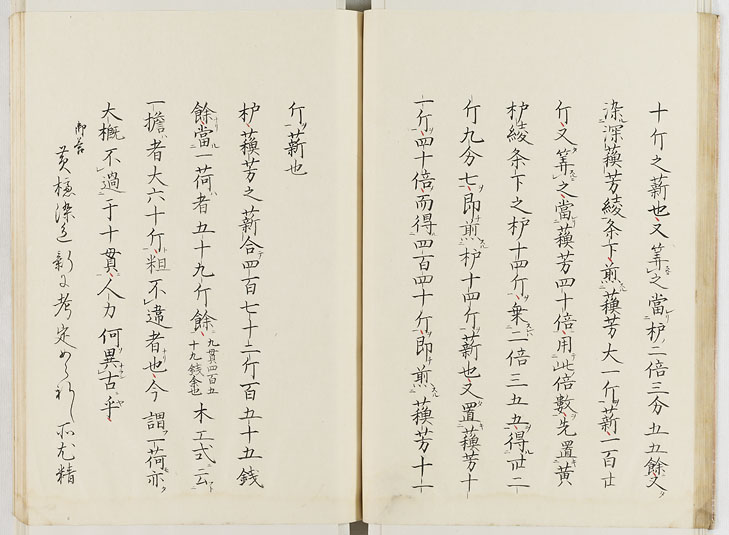 十斤之薪也又筭之當枦二倍三分五五餘又
染深蘓芳綾条下煎蘓芳大一斤薪一百廿
斤又筭之當蘓芳四十倍用此倍數先置黄
枦綾条下之枦十四斤乗二倍三五五得卅二
斤九分七即煎枦十四斤薪也又置蘓芳十
一斤四十倍而得四百四十斤即煎蘓芳十一
斤薪也
枦蘓芳之薪合四百七十二斤百五十五錢
餘當一荷者五十九斤餘九貫四百五十九錢余也木工式云
一擔者大六十斤粗不違者也今謂一荷亦
大概不過于十貫人力何異古乎
黄櫨染色新に考定め